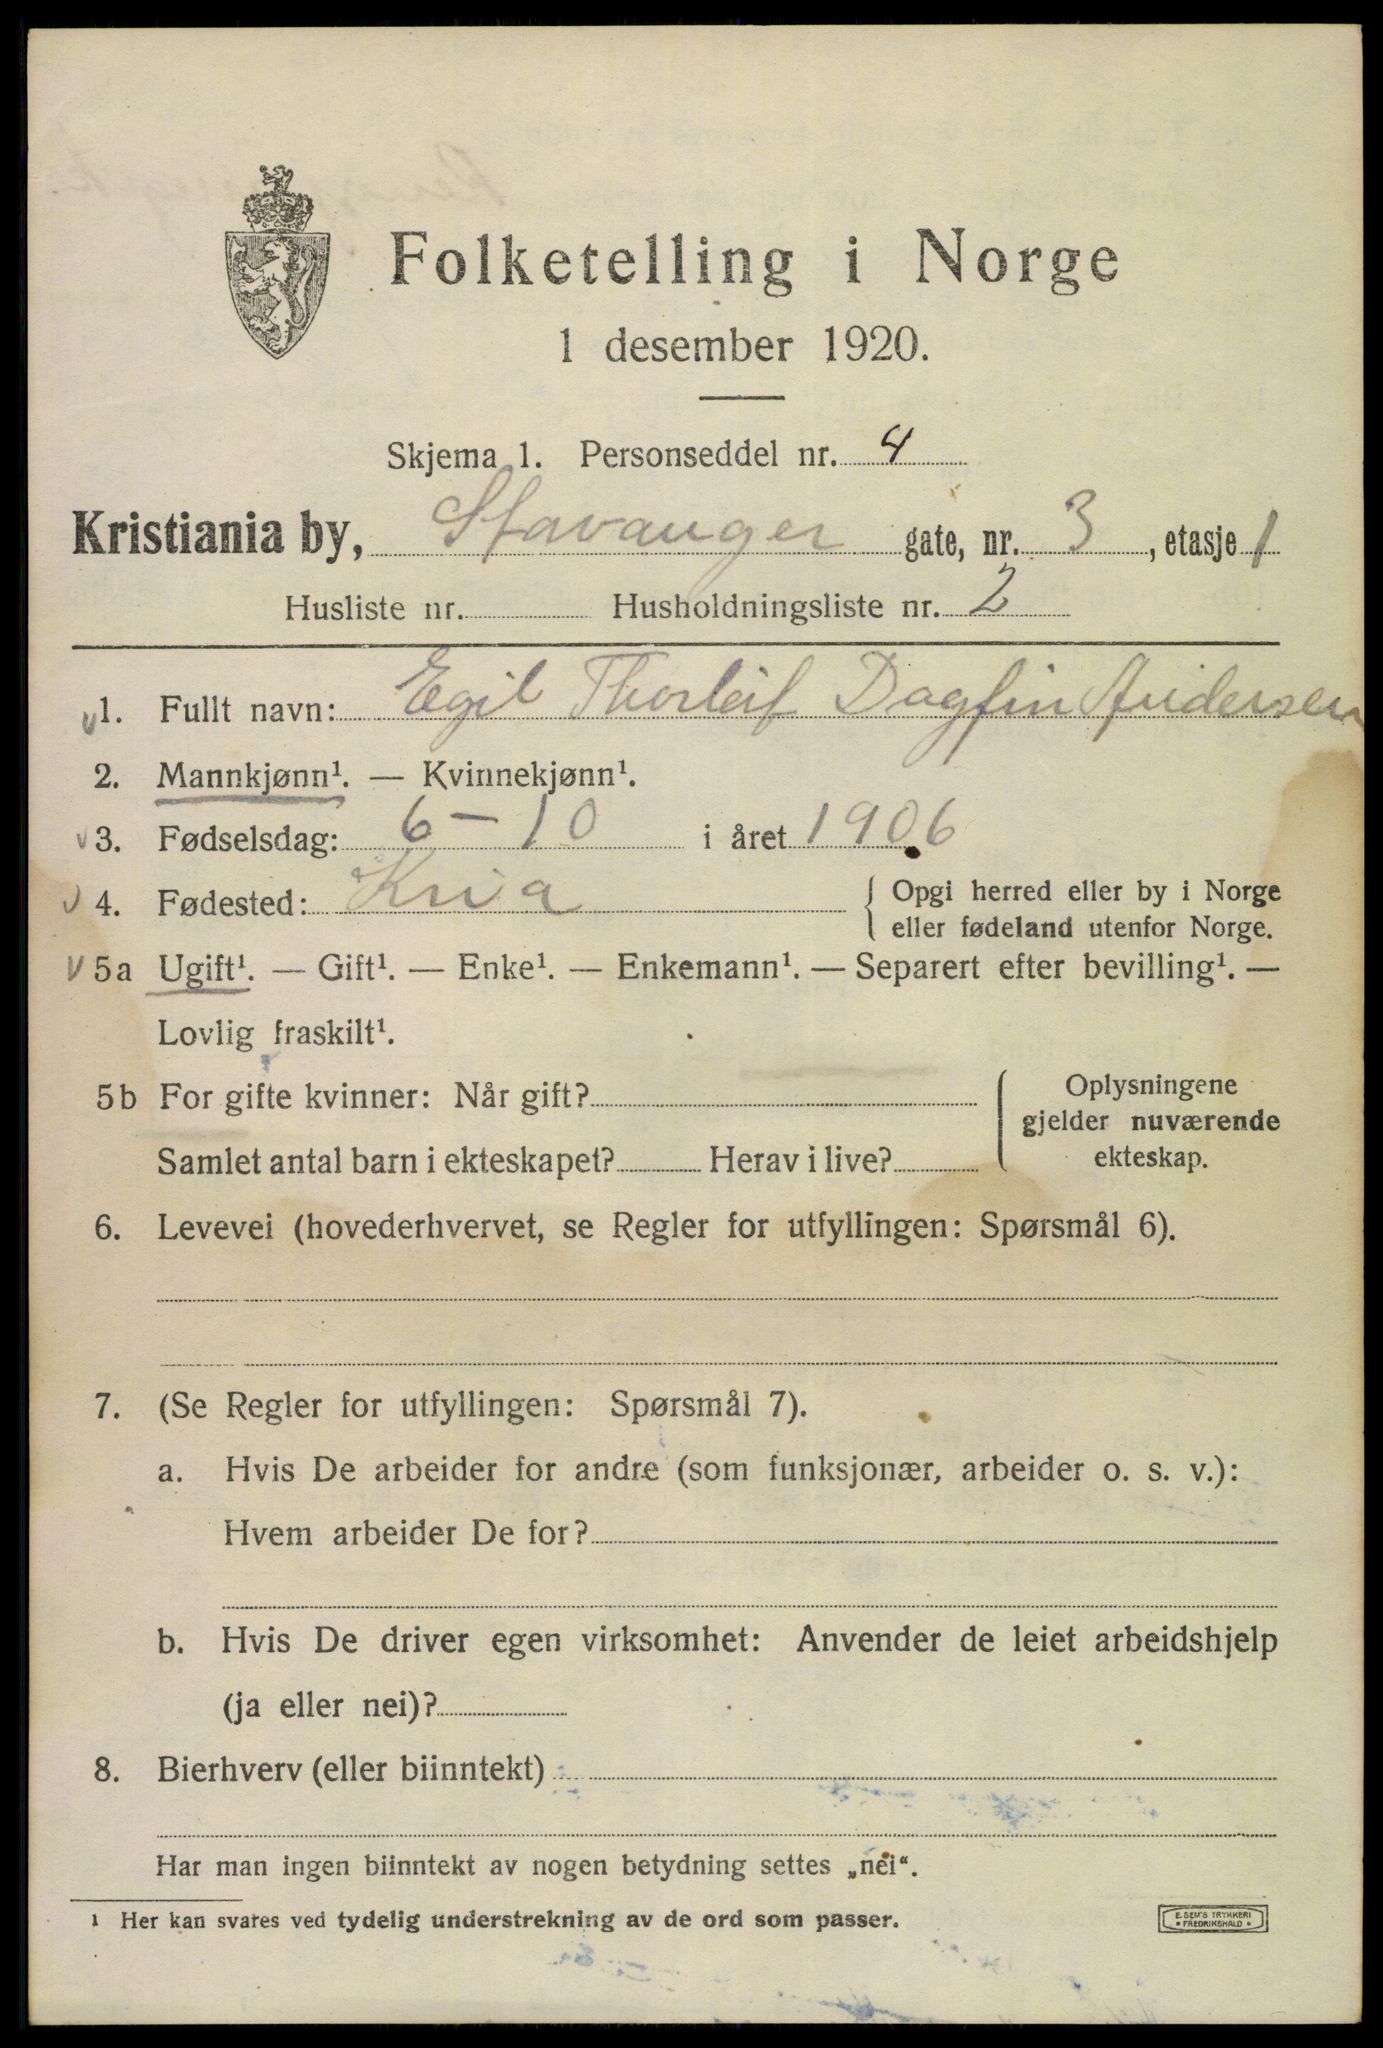 Folketelling i Norge
1 desember 1920.
Skjema 1. Personseddel nr. 4
Kristiania by, Stavanger gate, nr. 3, etasje 1
Husliste nr. Husholdningsliste nr. 2
1. Fullt navn: Egil Thorleif Dagfin Andersen
2. Mannkjønn¹. — Kvinnekjønn¹.
3. Fødselsdag: 6 – 10 i året 1906
4. Fødested: Kria { Opgi herred eller by i Norge
eller fødeland utenfor Norge.
5a Ugift¹. — Gift¹. — Enke¹. — Enkemann¹. — Separert efter bevilling¹. —
Lovlig fraskilt¹.
5b For gifte kvinner: Når gift?
Samlet antal barn i ekteskapet? Herav i live?
Oplysningene
gjelder nuværende
ekteskap.
6. Levevei (hovederhvervet, se Regler for utfyllingen: Spørsmål 6).
7. (Se Regler for utfyllingen: Spørsmål 7).
a. Hvis De arbeider for andre (som funksjonær, arbeider o. s. v.):
Hvem arbeider De for?
b. Hvis De driver egen virksomhet: Anvender de leiet arbeidshjelp
(ja eller nei)?
8. Bierhverv (eller biinntekt)
Har man ingen biinntekt av nogen betydning settes „nei“.
1 Her kan svares ved tydelig understrekning av de ord som passer.
E. SEM'S TRYKKERI
• FREDRIKSHALD •